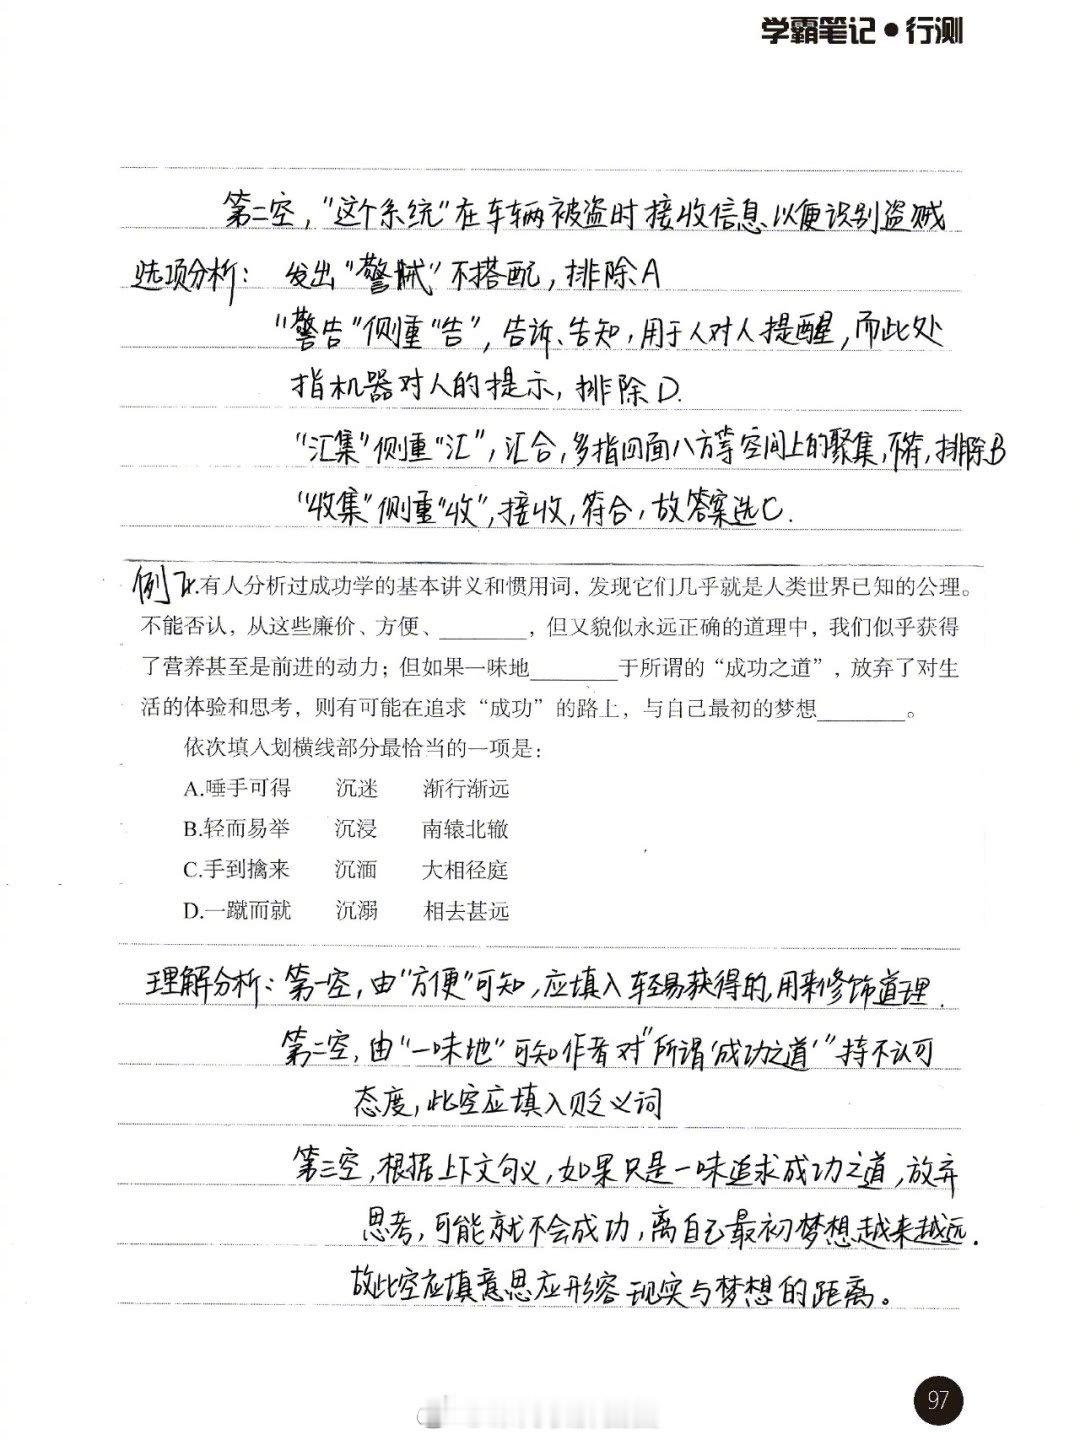 学霸笔记●行测
第二空，“这个系统”在车辆被盗时接收信息以便识别盗贼
选项分析：发出“警贼”不搭配，排除A
“警告”侧重“告”，告诉、告知，用于人对人提醒，而此处
指机器对人的提示，排除D.
“汇集”侧重“汇”，汇合，多指四面八方等空间上的聚集，不符，排除B
“收集”侧重“收”，接收，符合，故答案选C.
例 有人分析过成功学的基本讲义和惯用词，发现它们几乎就是人类世界已知的公理。
不能否认，从这些廉价、方便、________，但又貌似永远正确的道理中，我们似乎获得
了营养甚至是前进的动力；但如果一味地________于所谓的“成功之道”，放弃了对生
活的体验和思考，则有可能在追求“成功”的路上，与自己最初的梦想________。
依次填入划横线部分最恰当的一项是：
A.唾手可得 沉迷 渐行渐远
B.轻而易举 沉浸 南辕北辙
C.手到擒来 沉湎 大相径庭
D.一蹴而就 沉溺 相去甚远
理解分析：第一空，由“方便”可知，应填入轻易获得的，用来修饰道理.
第二空，由“一味地”可知作者对“所谓‘成功之道’”持不认可
态度，此空应填入贬义词
第三空，根据上下文句义，如果只是一味追求成功之道，放弃
思考，可能就不会成功，离自己最初梦想越来越远.
故此空应填意思应形容现实与梦想的距离。
97